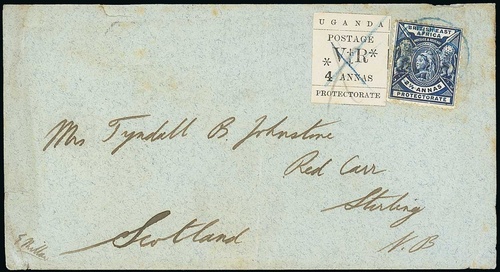 UGANDA
POSTAGE
*V†R*
4 ANNAS
PROTECTORATE
BRITISH EAST
AFRICA
2½ ANNAS
PROTECTORATE
Mrs Tyndall B Johnstone
Red Carr
Stirling
N. B
Scotland